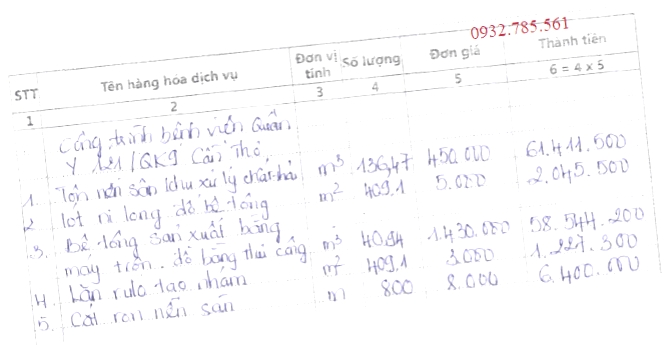 0932.785.561
STT Tên hàng hóa dịch vụ Đơn vị tính Số lượng Đơn giá Thành tiền
1 2 3 4 5 6 = 4 x 5
Công trình bệnh viện Quân
Y 121/QK9 Cần Thơ,
1. Tôn nền sân khu xử lý chất thải m³ 136,47 450.000 61.411.500
2 lót ni long đổ bê tông m² 409.1 5.000 2.045.500
3. Bê tông sản xuất bằng
máy trộn. đổ bằng thủ công m³ 40.94 1.430.000 58.544.200
4. Lăn rulo tạo nhám m² 409.1 3.000 1.227.300
5. Cắt ron nền sân m 800 8.000 6.400.000